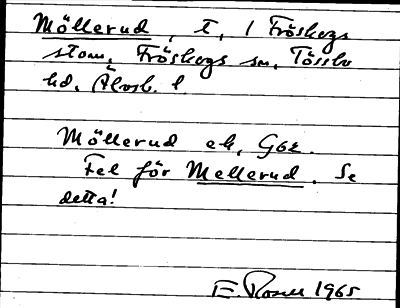 Möllerud, t, 1 Fröskogs
stom, Fröskogs sn, Tössbo
hd, Älvsb. l.
Möllerud ek, Gbz.
Fel för Mellerud. Se
detta!
E. Rosell 1965